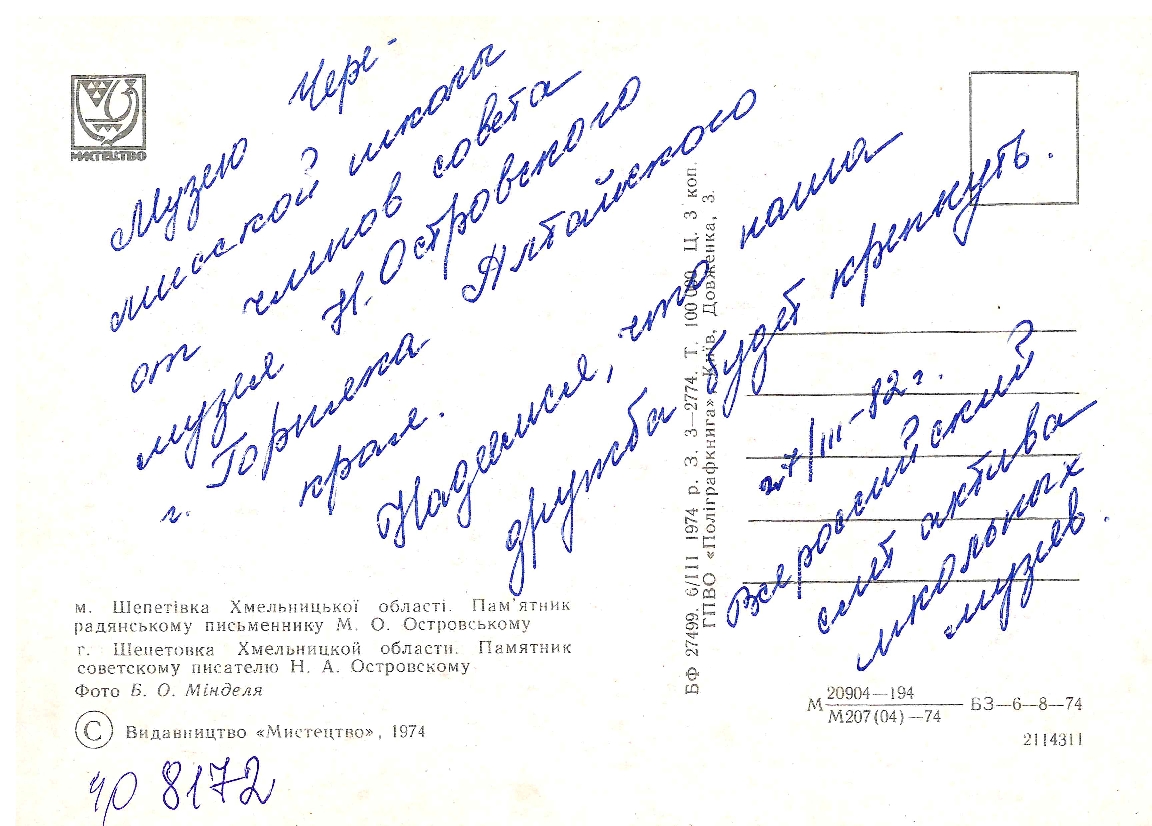 МИСТЕЦТВО
Музею Чере-
мисской школы
от членов совета
музея Н. Островского
г. Горняка Алтайского
края.
Надеемся, что наша
дружба будет крепнуть.
27/III-82 г.
Всероссийский
слет актива
школьных
музеев.
м. Шепетівка Хмельницької області. Пам'ятник
радянському письменнику М. О. Островському
г. Шепетовка Хмельницкой области. Памятник
советскому писателю Н. А. Островскому
Фото Б. О. Мінделя
© Видавництво «Мистецтво», 1974
БФ 27499. 6/III 1974 р. З. 3—2774. Т. 100 000. Ц. 3 коп.
ГПВО «Поліграфкнига», Київ, Довженка, 3.
М 20904—194
М207(04)—74 БЗ—6—8—74
2114311
8172